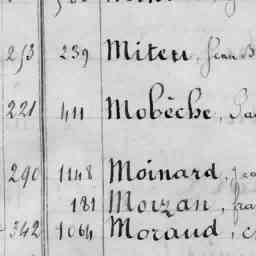 253 239 Miteu, Jean B
221 411 Mobèche, Pa
290 1148 Moinard, Jea
181 Moizan, fra
342 1064 Moraud,